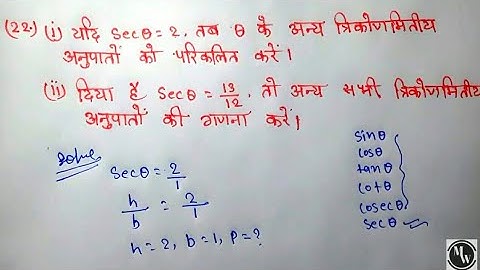 (22.) (i) यदि secθ = 2, तब θ के अन्य त्रिकोणमितीय
अनुपातों को परिकलित करें।
(ii) दिया है secθ = 13/12, तो अन्य सभी त्रिकोणमितीय
अनुपातों की गणना करें।
Solve
secθ = 2/1
h/b = 2/1
h = 2, b = 1, p = ?
sinθ
cosθ
tanθ
cotθ
cosecθ
secθ
MW